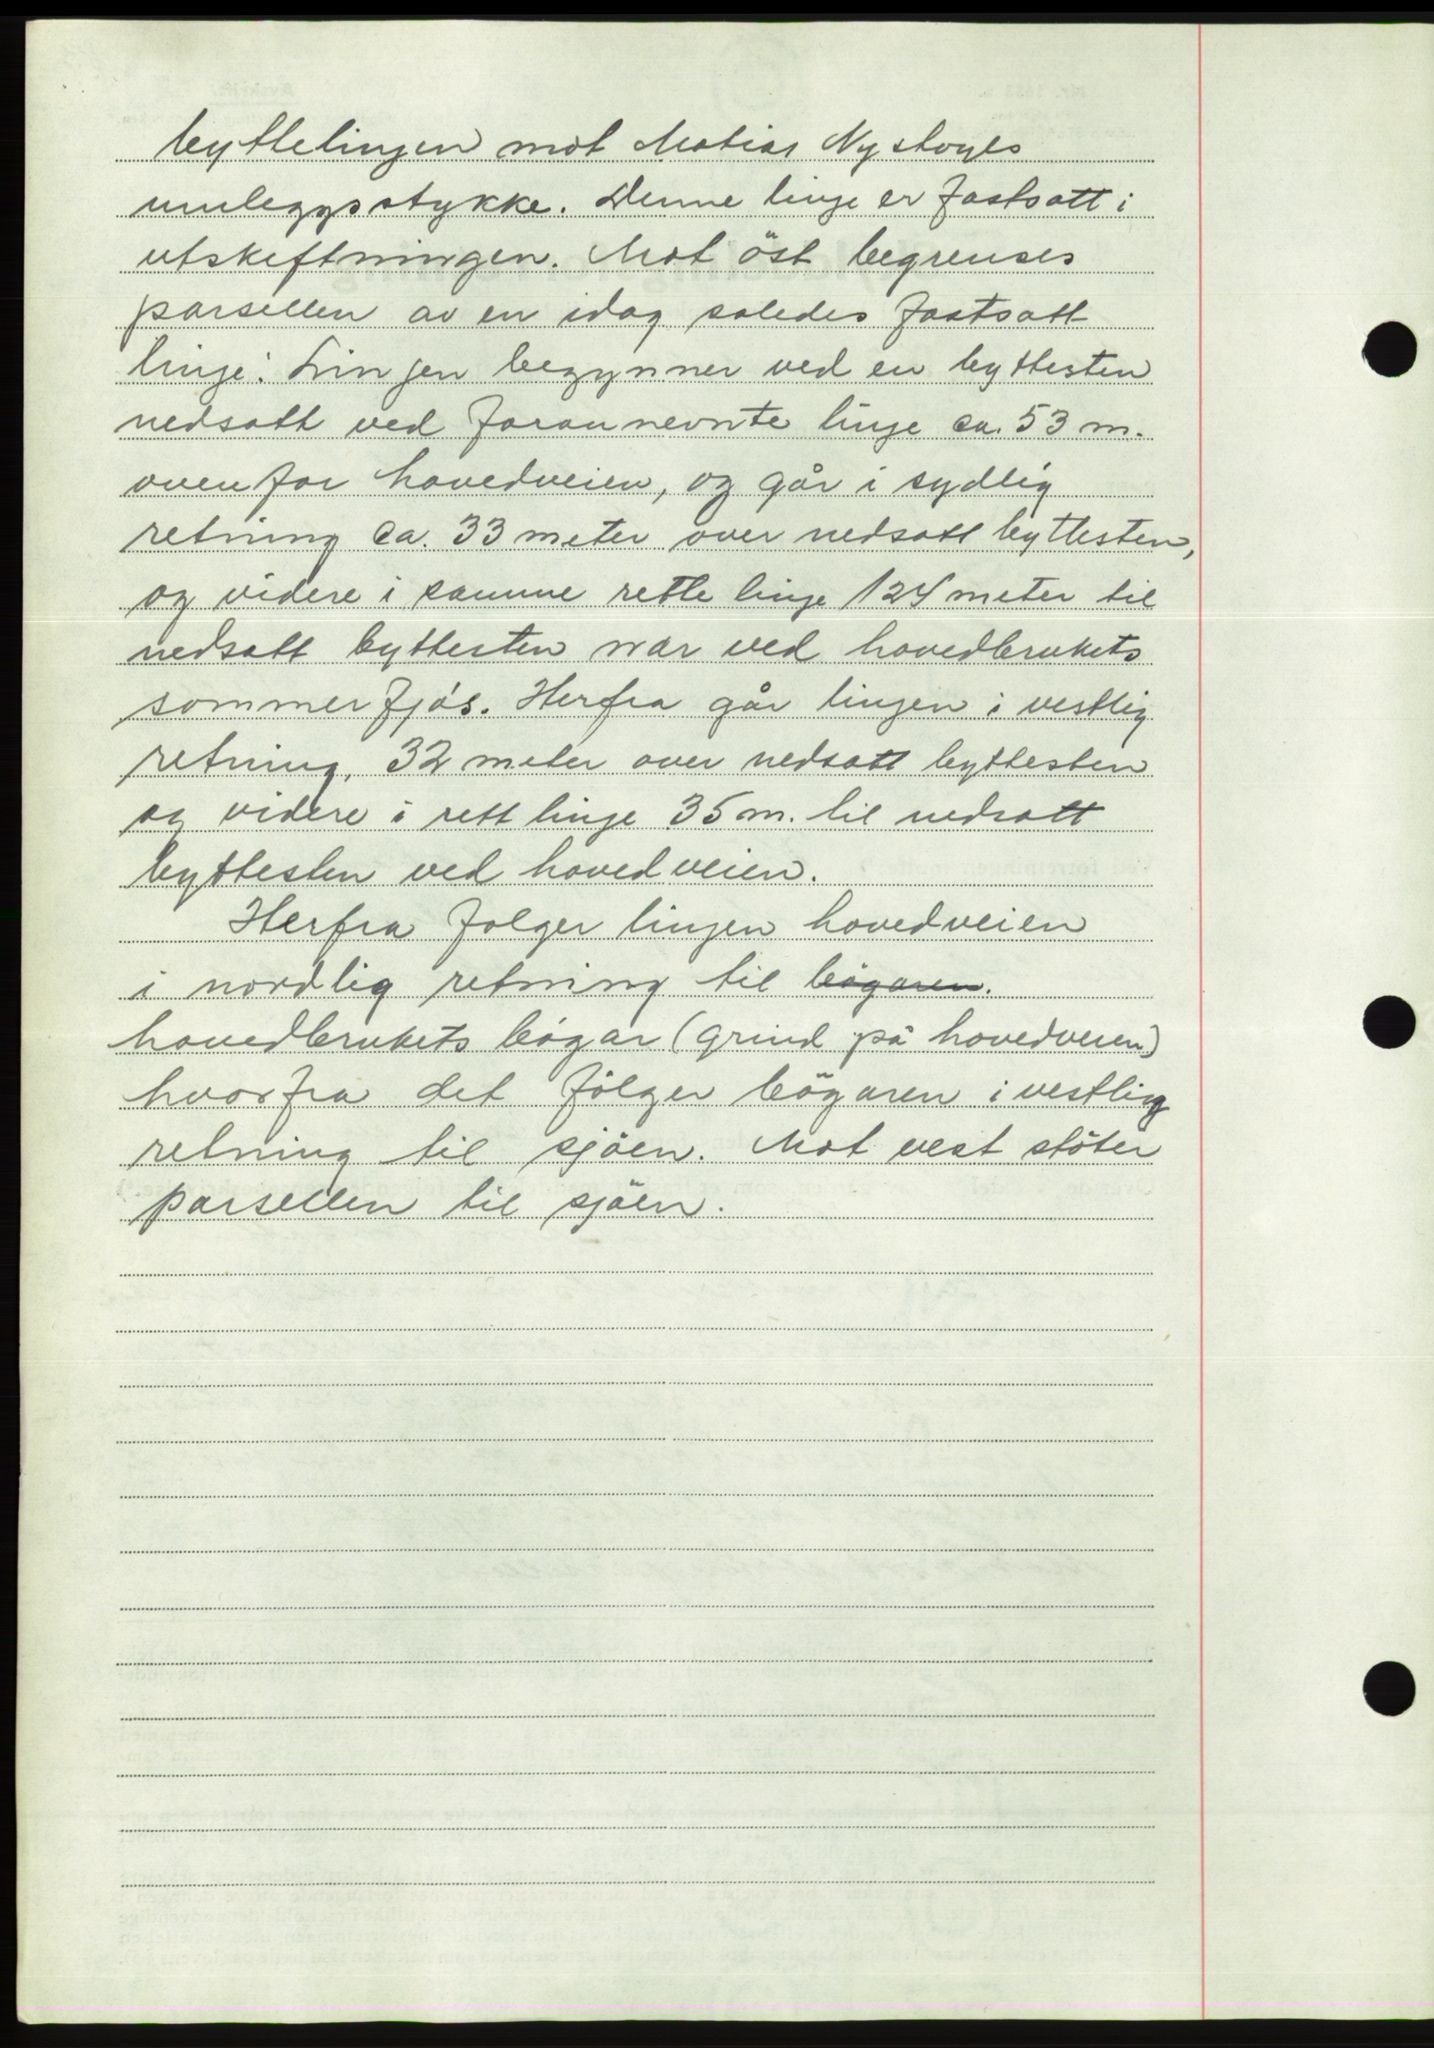 byttelinjen mot Matias Nystøyls
umleggsstykke. Denne linje er fastsatt i
utskiftningen. Mot öst begrenses
parsellen av en idag saledes fastsatt
linje: Linjen begynner ved en byttesten
nedsatt ved forannevnte linje ca. 53 m.
ovenfor hovedveien, og går i sydlig
retning ca. 33 meter over nedsatt byttesten,
og videre i samme rette linje 124 meter til
nedsatt byttesten nær ved hovedbrukets
sommerfjós. Herfra går linjen i vestlig
retning, 32 meter over nedsatt byttesten
og videre i rett linje 35 m. til nedsatt
byttesten ved hovedveien.
Herfra følger linjen hovedveien
i nordlig retning til bögaren.
hovedbrukets bögar (grind på hovedveien)
hvorfra det fölger bögaren i vestlig
retning til sjöen. Mot vest stöter
parsellen til sjöen.